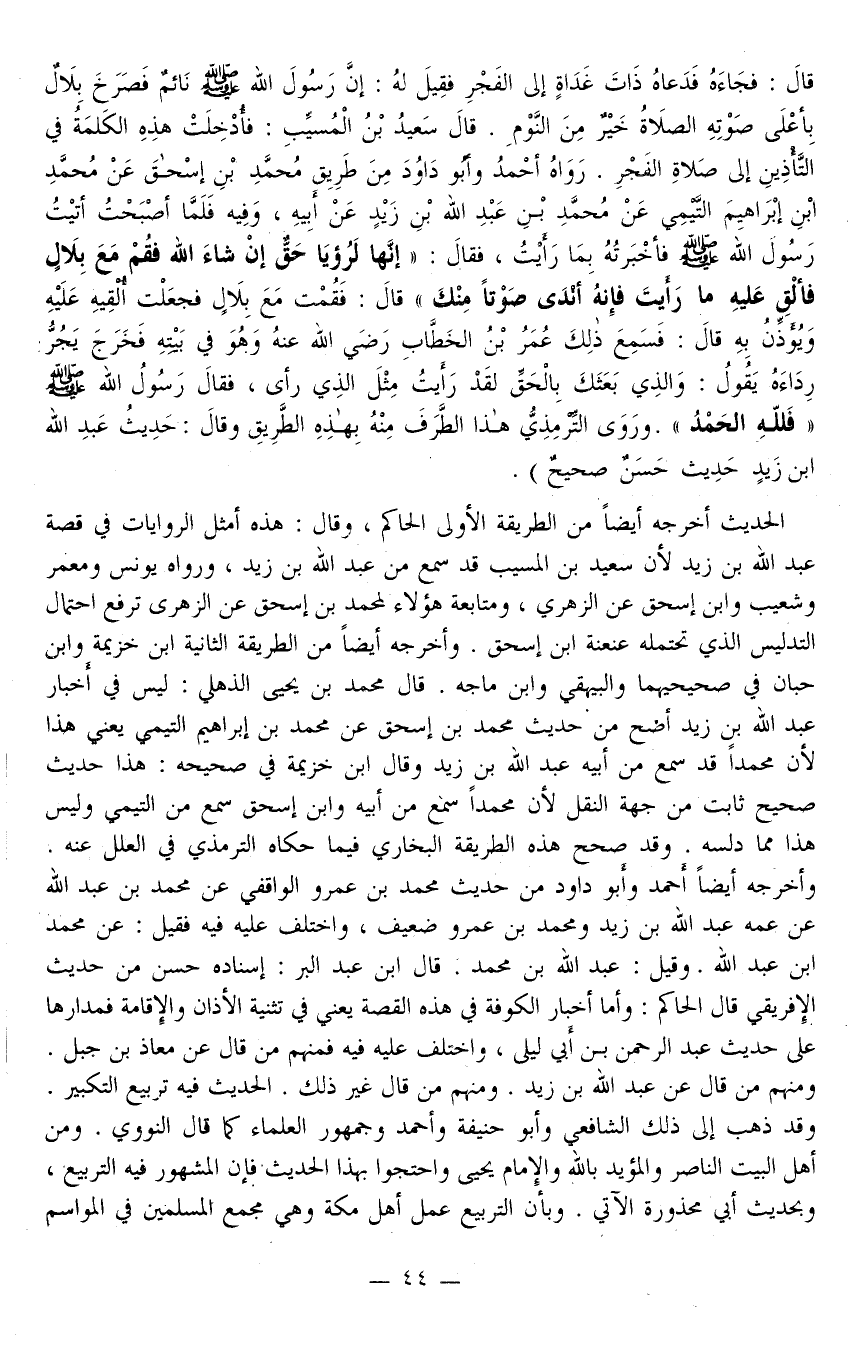 قالَ : فجَاءَهُ فَدَعاهُ ذَاتَ غَدَاةٍ إلى الفَجْرِ فقِيلَ لهُ : إنَّ رَسُولَ الله ﷺ نَائمٌ فَصَرَخَ بِلَالٌ
بِأعْلَى صَوْتِهِ الصلَاةُ خَيْرٌ مِنَ النَّوْمِ . قالَ سَعيدُ بْنُ الْمُسيِّبِ : فأُدْخِلَتْ هذِهِ الكَلمَةُ في
التَّأْذِينِ إلى صَلاةِ الفَجْرِ . رَوَاهُ أحْمدُ وأبُو دَاوُدَ مِنَ طَرِيقِ مُحمَّدِ بْنِ إسْحٰقَ عَنْ مُحمَّدِ
ابْنِ إبْرَاهِيمَ التَّيْمِي عَنْ مُحمَّدِ بْـنِ عَبْدِ الله بْنِ زَيْدٍ عَنْ أَبِيهِ ، وَفِيه فَلَمَّا أصْبَحْتُ أتَيْتُ
رَسُولَ الله ﷺ فأخْبَرتُهُ بِمَا رَأَيْتُ ، فقالَ : « إنَّها لَرُؤيَا حَقٌّ إنْ شاءَ الله فقُمْ مَعَ بِلَالٍ
فألْقِ عَليهِ ما رَأَيتَ فإنهُ أنْدَى صَوْتاً مِنْكَ » قالَ : فَقُمْت مَعَ بِلَالٍ فجعَلْت أُلْقِيهِ عَلَيْهِ
وَيُؤَذِّنُ بِهِ قالَ : فَسَمِعَ ذٰلِكَ عُمَرُ بْنُ الخَطَّابِ رَضِي الله عنهُ وَهُوَ في بَيْتِهِ فَخَرَجَ يَجُرُّ
رِدَاءَهُ يَقُولُ : وَالذِي بَعَثَكَ بِالْحَقِّ لقَدْ رَأَيتُ مِثْلَ الذِي رأى ، فقالَ رَسُولُ الله ﷺ
« فَللّـهِ الحَمْدُ » . ورَوَى التِّرْمذِيُّ هـٰذا الطَّرَفَ مِنْهُ بِهـٰذِهِ الطَّرِيقِ وقالَ : حَدِيثُ عَبدِ الله
ابن زَيدٍ حَدِيث حَسَنٌ صحيحٌ ) .
الحديث أخرجه أيضاً من الطريقة الأولى الحاكم ، وقال : هذه أمثل الروايات في قصة
عبد الله بن زيد لأن سعيد بن المسيب قد سمع من عبد الله بن زيد ، ورواه يونس ومعمر
وشعيب وابن إسحق عن الزهري ، ومتابعة هؤلاء لمحمد بن إسحق عن الزهرى ترفع احتمال
التدليس الذي تحتمله عنعنة ابن إسحق . وأخرجه أيضاً من الطريقة الثانية ابن خزيمة وابن
حبان في صحيحيهما والبيهقي وابن ماجه . قال محمد بن يحيى الذهلي : ليس في أخبار
عبد الله بن زيد أضح من حديث محمد بن إسحق عن محمد بن إبراهيم التيمي يعني هذا
لأن محمداً قد سمع من أبيه عبد الله بن زيد وقال ابن خزيمة في صحيحه : هذا حديث
صحيح ثابت من جهة النقل لأن محمداً سمع من أبيه وابن إسحق سمع من التيمي وليس
هذا مما دلسه . وقد صحح هذه الطريقة البخاري فيما حكاه الترمذي في العلل عنه .
وأخرجه أيضاً أَحمد وأبو داود من حديث محمد بن عمرو الواقفي عن محمد بن عبد الله
عن عمه عبد الله بن زيد ومحمد بن عمرو ضعيف ، واختلف عليه فيه فقيل : عن محمد
ابن عبد الله . وقيل : عبد الله بن محمد . قال ابن عبد البر : إسناده حسن من حديث
الإفريقي قال الحاكم : وأما أخبار الكوفة في هذه القصة يعني في تثنية الأذان والإقامة فمدارها
على حديث عبد الرحمن بـن أَبي ليلى ، واختلف عليه فيه فمنهم من قال عن معاذ بن جبل .
ومنهم من قال عن عبد الله بن زيد . ومنهم من قال غير ذلك . الحديث فيه تربيع التكبير .
وقد ذهب إلى ذلك الشافعي وأبو حنيفة وأحمد وجمهور العلماء كما قال النووي . ومن
أهل البيت الناصر والمؤيد بالله والإمام يحيى واحتجوا بهذا الحديث فإن المشهور فيه التربيع ،
وبحديث أبي محذورة الآتي . وبأن التربيع عمل أهل مكة وهي مجمع المسلمين في المواسم
— ٤٤ —